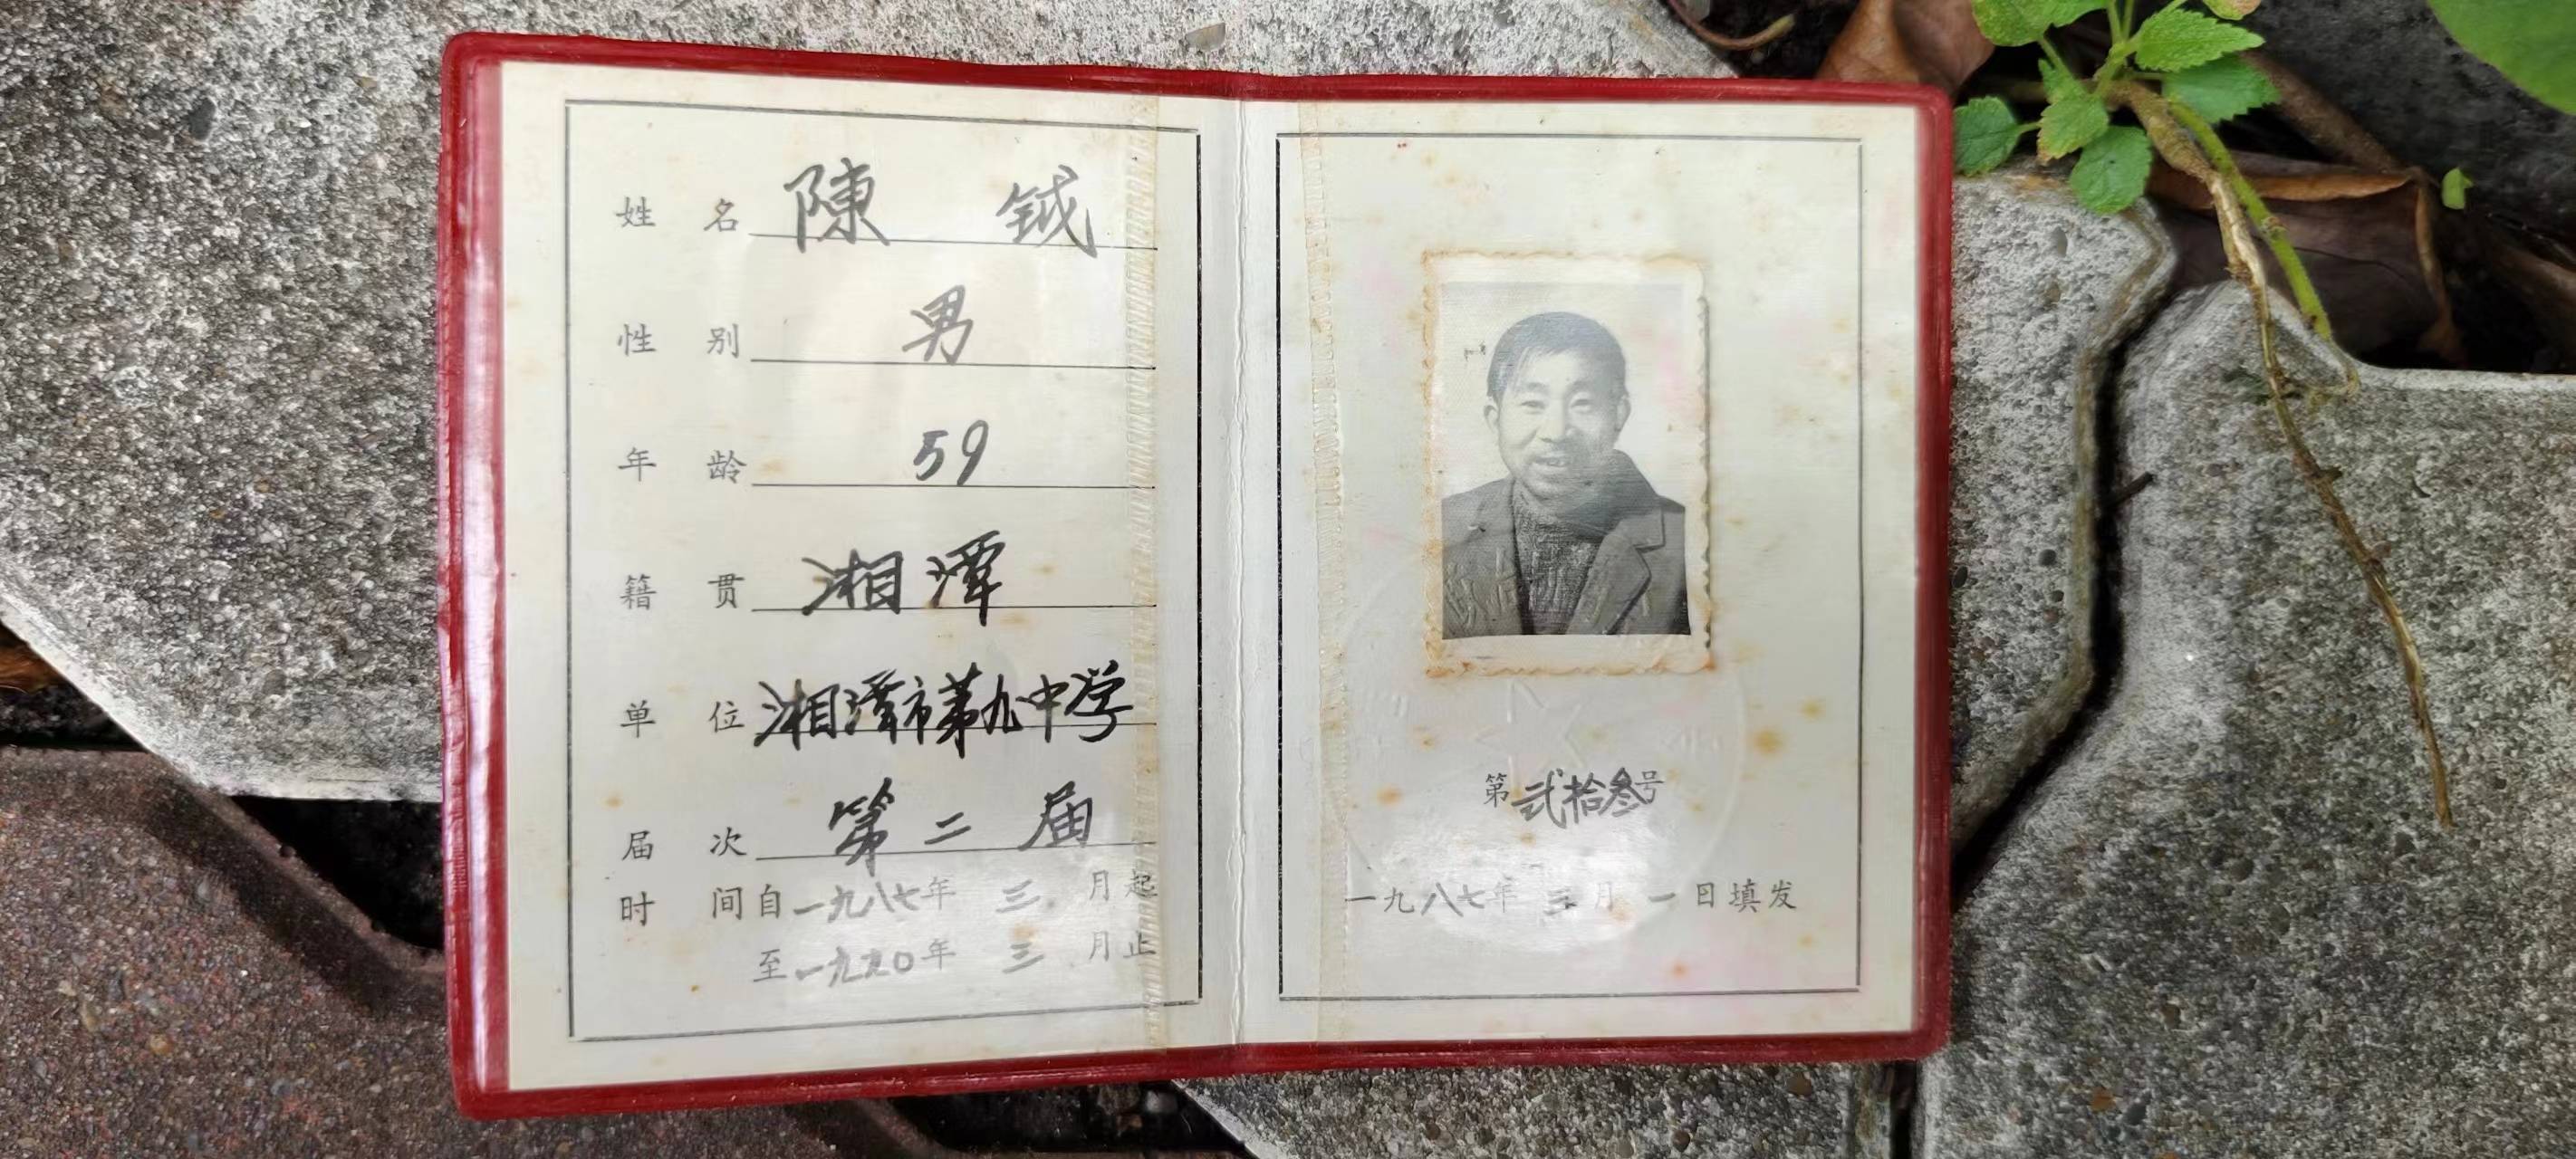 姓 名 陳 钺
性 别 男
年 龄 59
籍 贯 湘潭
单 位 湘潭市第九中学
届 次 第二届
时 间 自一九八七年 三 月起
至一九九0年 三 月止
第贰拾叁号
一九八七年 三 月 一 日填发